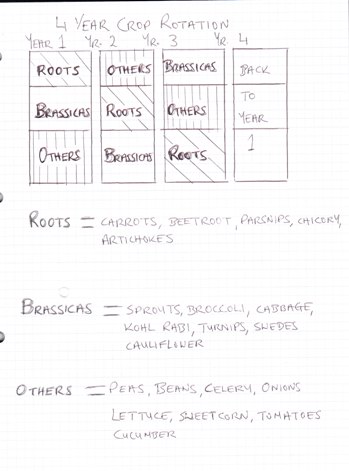 4 YEAR CROP ROTATION
YEAR 1 YR. 2 YR. 3 YR. 4
ROOTS OTHERS BRASSICAS BACK
BRASSICAS ROOTS OTHERS TO YEAR
OTHERS BRASSICAS ROOTS 1
ROOTS = CARROTS, BEETROOT, PARSNIPS, CHICORY,
ARTICHOKES
BRASSICAS = SPROUTS, BROCCOLI, CABBAGE,
KOHL RABI, TURNIPS, SWEDES
CAULIFLOWER
OTHERS = PEAS, BEANS, CELERY, ONIONS
LETTUCE, SWEETCORN, TOMATOES
CUCUMBER